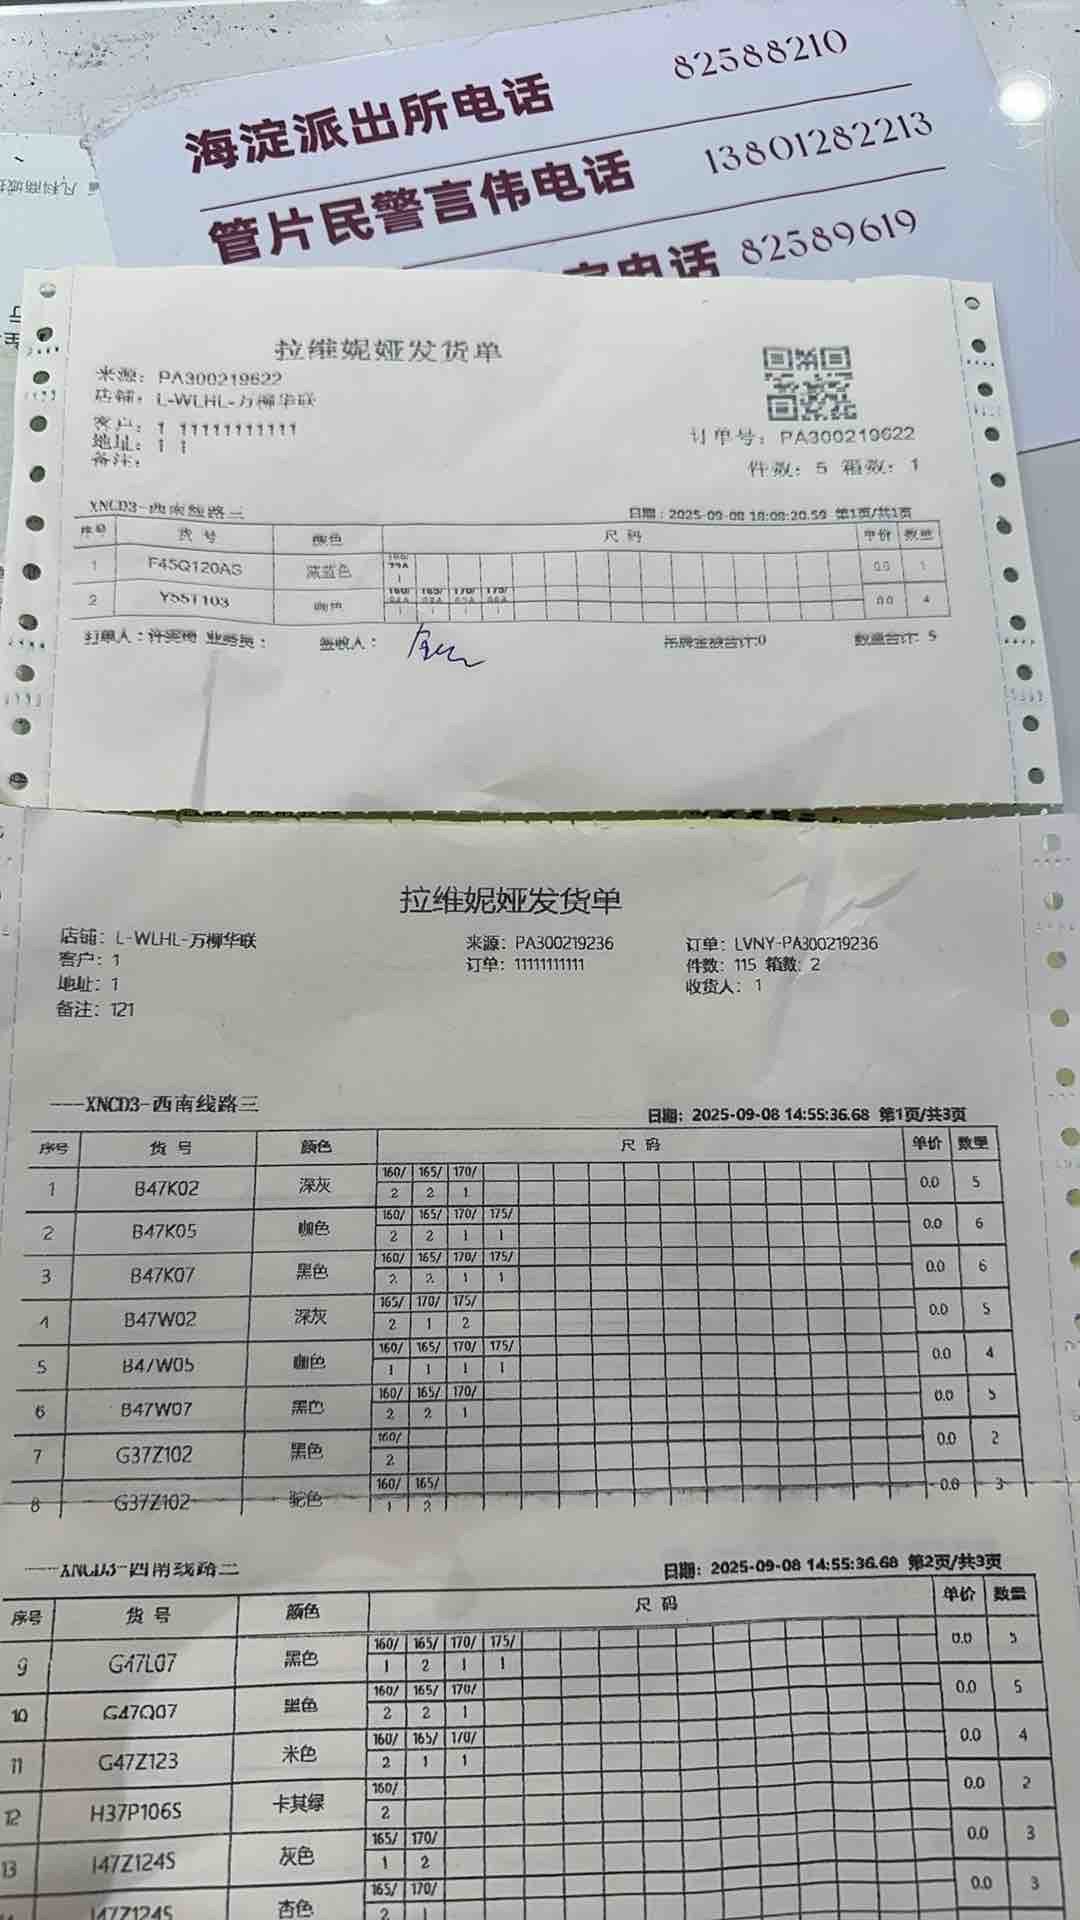 海淀派出所电话 82588210
管片民警言伟电话 13801282213
电话 82589619
拉维妮娅发货单
来源：PA300219622
店铺：L-WLHL-万柳华联
客户：1 11111111111
地址：1 1
备注：
订单号：PA300219622
件数：5 箱数：1
XNCD3-西南线路三 日期：2025-09-08 18:08:20.59 第1页/共1页
序号 货号 颜色 尺码 单价 数量
1 F45Q120AS 藏蓝色 1 0.0 1
160/ 165/ 170/ 175/
2 Y55T103 咖色 1 1 1 1 0.0 4
打单人： 业务员： 签收人： 吊牌金额合计:0 数量合计: 5
拉维妮娅发货单
店铺：L-WLHL-万柳华联 来源：PA300219236 订单：LVNY-PA300219236
客户：1 订单：11111111111 件数：115 箱数：2
地址：1 收货人：1
备注：121
---XNCD3-西南线路三 日期：2025-09-08 14:55:36.68 第1页/共3页
序号 货号 颜色 尺码 单价 数量
160/ 165/ 170/
1 B47K02 深灰 2 2 1 0.0 5
160/ 165/ 170/ 175/
2 B47K05 咖色 2 2 1 1 0.0 6
160/ 165/ 170/ 175/
3 B47K07 黑色 2 2 1 1 0.0 6
165/ 170/ 175/
4 B47W02 深灰 2 1 2 0.0 5
160/ 165/ 170/ 175/
5 B47W05 咖色 1 1 1 1 0.0 4
160/ 165/ 170/
6 B47W07 黑色 2 2 1 0.0 5
160/
7 G37Z102 黑色 2 0.0 2
160/ 165/
8 G37Z102 驼色 1 2 0.0 3
---XNCD3-西南线路三 日期：2025-09-08 14:55:36.68 第2页/共3页
序号 货号 颜色 尺码 单价 数量
160/ 165/ 170/ 175/
9 G47L07 黑色 1 2 1 1 0.0 5
160/ 165/ 170/
10 G47Q07 黑色 2 2 1 0.0 5
160/ 165/ 170/
11 G47Z123 米色 2 1 1 0.0 4
160/
12 H37P106S 卡其绿 2 0.0 2
165/ 170/
13 I47Z124S 灰色 1 2 0.0 3
165/ 170/
I47Z124S 杏色 2 1 0.0 3